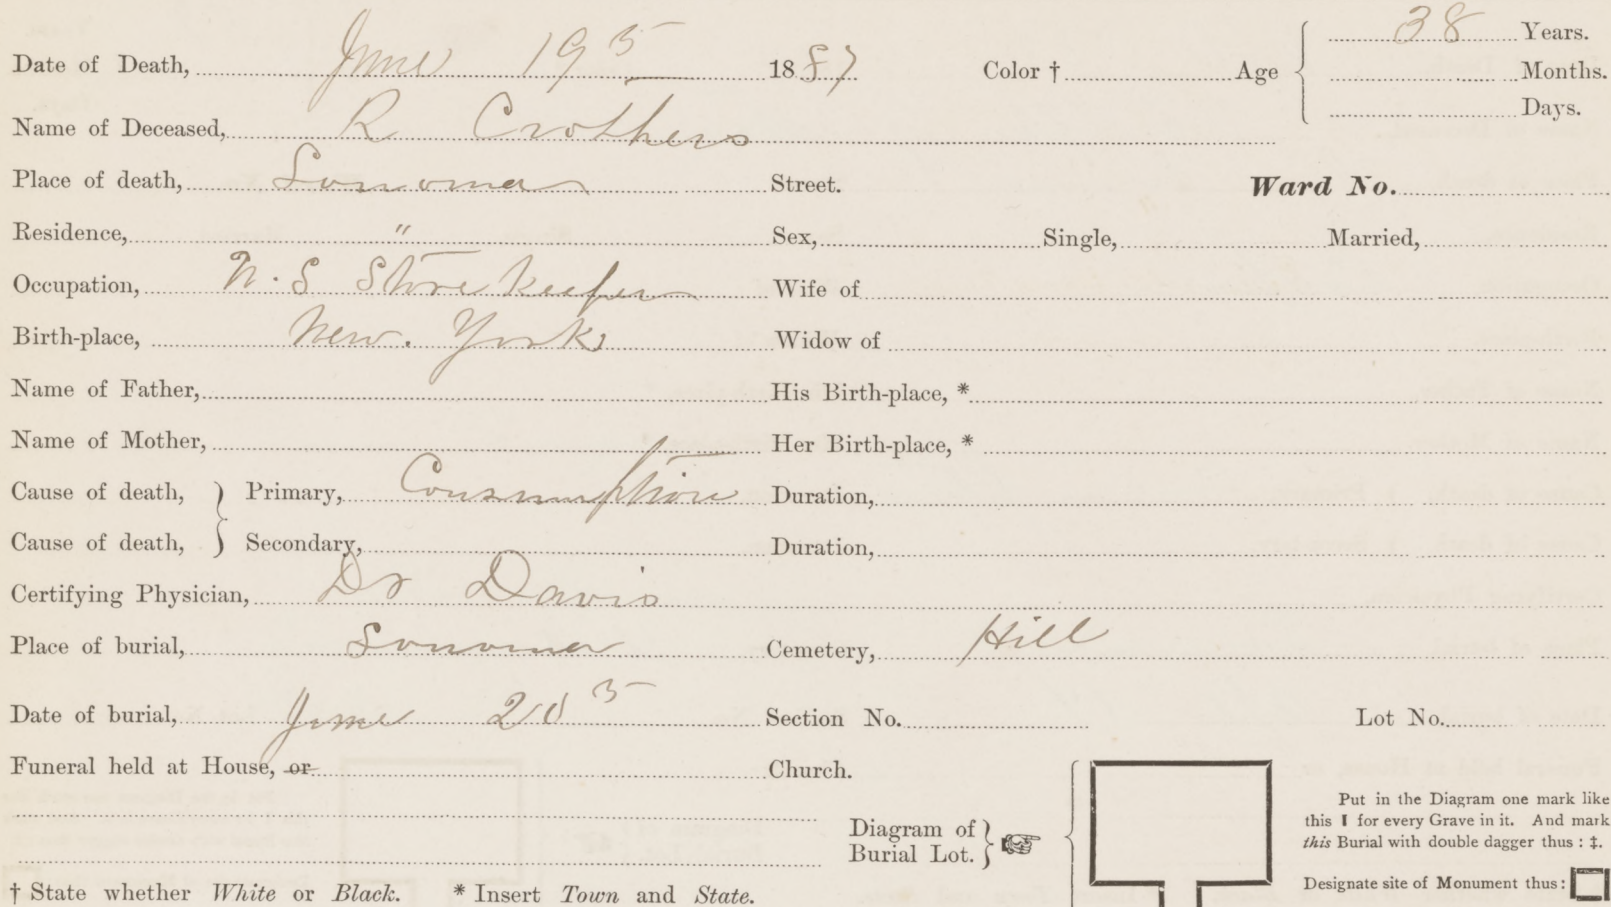 Date of Death, June 19 5 1887 Color † Age 38 Years.
Months.
Days.
Name of Deceased, R Crothers
Place of death, Sonoma Street. Ward No.
Residence, " Sex, Single, Married,
Occupation, U.S Store keeper Wife of
Birth-place, New. York Widow of
Name of Father, His Birth-place, *
Name of Mother, Her Birth-place, *
Cause of death, } Primary, Consumption Duration,
Cause of death, } Secondary, Duration,
Certifying Physician, Dr Davis
Place of burial, Sonoma Cemetery, Hill
Date of burial, June 20 5 Section No. Lot No.
Funeral held at House, or Church.
Diagram of
Burial Lot.
Put in the Diagram one mark like
this I for every Grave in it. And mark
this Burial with double dagger thus : ‡.
Designate site of Monument thus :
† State whether White or Black. * Insert Town and State.